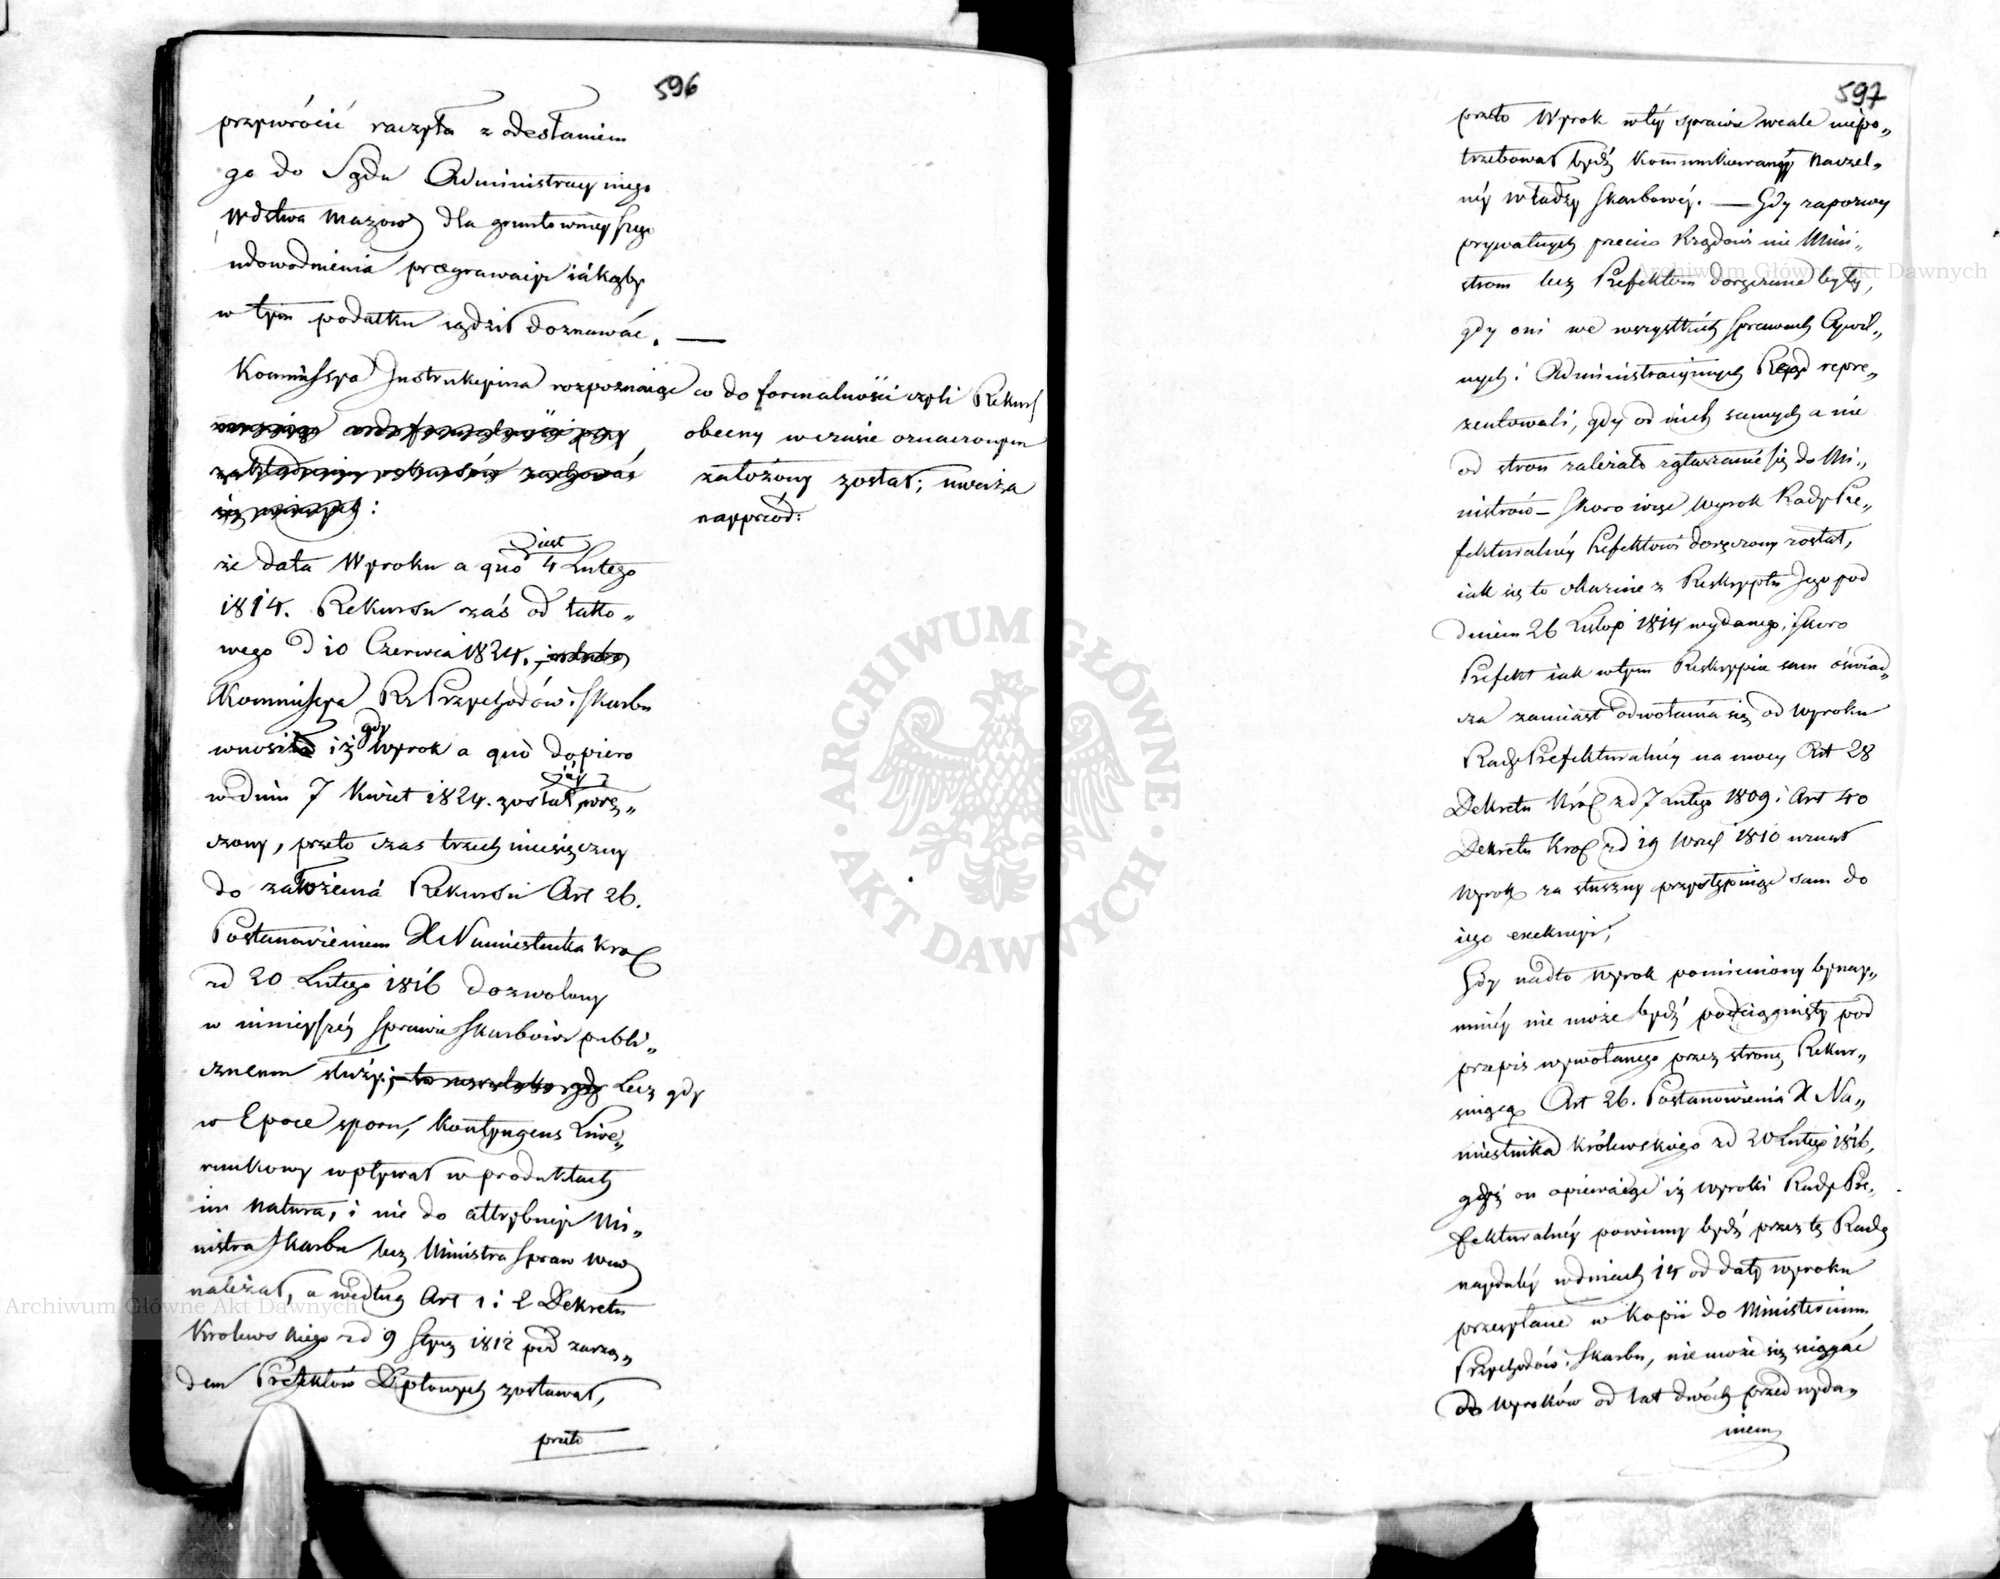 596
przywrócić raczyła z odesłaniem
go do Sądu Administracyinego
Wdztwa Mazow dla gruntownieyszego
udowodnienia pregrawacyi iakąby
w tym podatku sądził doznawać. —
Kommissya Instrukcyina rozpoznaiąc co do formalności czyli Rekurs
obecny w czasie oznaczonym
założony został; uważa
naypród:
że data Wyroku a quo iest 4 Lutego
1814. Rekursu zaś od tako„
wego d 10 Czerwca 1824.
Kommissya R. Przychodów i Skarbu
wnosi iż gdy Wyrok a quo dopiero
w dniu 7 Kwiet 1824. został iéy dorę„
czony, przeto czas trzech miesięczny
do założenia Rekursu Art 26.
Postanowieniem X Namiestnika Krol
z d 20 Lutego 1816 dozwolony
w ninieyszéy sprawie Skarbowi publi„
cznemu służy; Lecz gdy
w Epoce sporu, kontyngens Liwe„
runkowy wpływał w produktach
in natura, i nie do attrybucyi Mi„
nistra Skarbu lecz Ministra Spraw Wew
należał, a według Art 1 i 2 Dekretu
Krolewskiego z d 9 Stycz 1812 pod zarzą„
dem Prefektów Dptowych zostawał,
przeto
597
przeto Wyrok w téy sprawie wcale niepo„
trzebował bydź kommunikowany naczel„
néy władzy Skarbowéy. — Gdy zapozwy
prywatnych przeciw Rządowi nie Mini„
strom lecz Prefektom doręczane były,
gdy oni we wszystkich sprawach Cywil„
nych i Administracyinych Rząd repre„
zentowali, gdy od nich samych a nie
od stron zależało zgłaszanie się do Mi„
nistrów — skoro więc Wyrok Rady Pre„
fekturalnéy Prefektowi doręczony został,
iak się to okazuie z Reskryptu Jego pod
dniem 26 Listop 1814 wydanego, i skoro
Prefekt iak w tym Reskrypcie sam oświad„
cza zamiast odwołania się od Wyroku
Rady Prefekturalnéy na mocy Art 28
Dekretu Król z d 7 Lutego 1809 i Art 40
Dekretu Krol z d 19 Wrześ 1810 uznał
Wyrok za słuszny przystępuiąc sam do
iego exekucyi,
Gdy nadto Wyrok pomieniony bynay„
mniéy nie może bydź podciągnięty pod
przepis wywołanego przez stronę Rekur„
suiącą Art 26. Postanowienia X Na„
miestnika Królewskiego z d 20 Lutego 1816,
gdyż on opiewaiąc iż wyroki Rady Pre„
fekturalnéy powinny bydź przez tę Radę
naydaléy w dniach 14 od daty wyroku
przesyłane w kopii do Ministerium
Przychodów i Skarbu, nie może się sciągać
do Wyroków od lat dwóch przed wyda„
niem
ARCHIWUM GŁÓWNE · AKT DAWNYCH ·
Archiwum Główne Akt Dawnych
Archiwum Główne Akt Dawnych